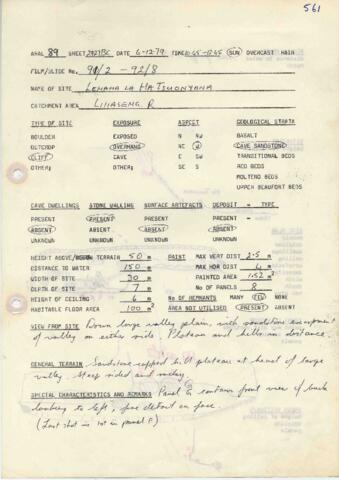 561
ARAL 89 SHEET 2927BC DATE 6-12-79 TIME 10.45-12.45 SUN OVERCAST RAIN
FILM/SLIDE NO. 91/2 - 92/8
NAME OF SITE LEHAHA LA MATSUONYANA
CATCHMENT AREA LIHASENG R
TYPE OF SITE EXPOSURE ASPECT GEOLOGICAL STRATA
BOULDER EXPOSED N NW BASALT
OUTCROP OVERHANG NE W CAVE SANDSTONE
CLIFF CAVE E SW TRANSITIONAL BEDS
OTHER: OTHER: SE S RED BEDS
MOLTENO BEDS
UPPER BEAUFORT BEDS
CAVE DWELLINGS STONE WALLING SURFACE ARTEFACTS DEPOSIT - TYPE
PRESENT PRESENT PRESENT PRESENT -
ABSENT ABSENT ABSENT ABSENT
UNKNOWN UNKNOWN UNKNOWN UNKNOWN
HEIGHT ABOVE/BELOW TERRAIN 50 m PAINT MAX VERT DIST 2.5 m
DISTANCE TO WATER 150 m MAX HOR DIST 4 m
WIDTH OF SITE 30 m PAINTED AREA 1.52 m²
DEPTH OF SITE 7 m No OF PANELS 8
HEIGHT OF CEILING 6 m No OF REMNANTS MANY FEW NONE
HABITABLE FLOOR AREA 100 m² AREA NOT UTILISED PRESENT ABSENT
VIEW FROM SITE Down large valley plain, with sandstone escarpment
of valley on either side. Plateau and hills in distance.
GENERAL TERRAIN Sandstone capped hill plateau at head of large
valley. Steep sided and rocky.
SPECIAL CHARACTERISTICS AND REMARKS Panel G contains front view of buck
looking to left, fine detail on face.
(Last shot is 1st in panel F)